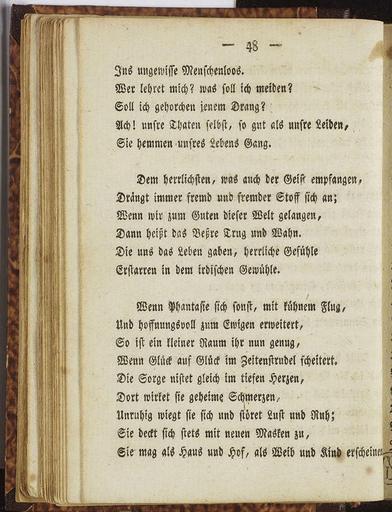 — 48 —
Ins ungewisse Menschenloos.
Wer lehret mich? was soll ich meiden?
Soll ich gehorchen jenem Drang?
Ach! unsre Thaten selbst, so gut als unsre Leiden,
Sie hemmen unsres Lebens Gang.
Dem herrlichsten, was auch der Geist empfangen,
Drängt immer fremd und fremder Stoff sich an;
Wenn wir zum Guten dieser Welt gelangen,
Dann heißt das Beßre Trug und Wahn.
Die uns das Leben gaben, herrliche Gefühle
Erstarren in dem irdischen Gewühle.
Wenn Phantasie sich sonst, mit kühnem Flug,
Und hoffnungsvoll zum Ewigen erweitert,
So ist ein kleiner Raum ihr nun genug,
Wenn Glück auf Glück im Zeitenstrudel scheitert.
Die Sorge nistet gleich im tiefen Herzen,
Dort wirket sie geheime Schmerzen,
Unruhig wiegt sie sich und störet Lust und Ruh;
Sie deckt sich stets mit neuen Masken zu,
Sie mag als Haus und Hof, als Weib und Kind erscheinen